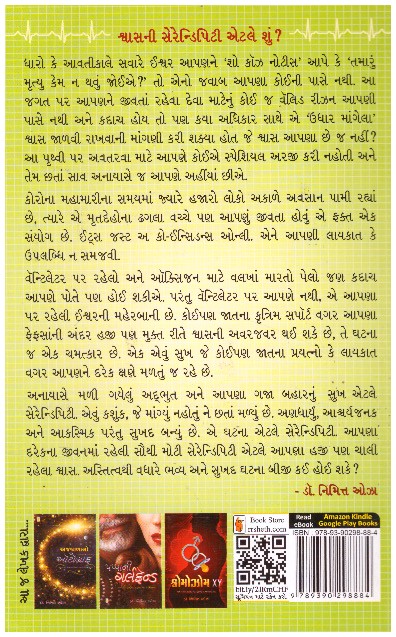 શ્વાસની સેરેન્ડિપિટી એટલે શું?
ધારો કે આવતીકાલે સવારે ઈશ્વર આપણને ‘શો કૉઝ નોટીસ’ આપે કે ‘તમારું
મૃત્યુ કેમ ન થવું જોઈએ?’ તો એનો જવાબ આપણા કોઈની પાસે નથી. આ
જગત પર આપણને જીવતાં રહેવા દેવા માટેનું કોઈ જ વૅલિડ રીઝન આપણી
પાસે નથી અને કદાચ હોય તો પણ કયા અધિકાર સાથે એ ‘ઉધાર માંગેલા’
શ્વાસ જાળવી રાખવાની માંગણી કરી શક્યા હોત જે શ્વાસ આપણા છે જ નહીં?
આ પૃથ્વી પર અવતરવા માટે આપણે કોઈએ સ્પેશિયલ અરજી કરી નહોતી અને
તેમ છતાં સાવ અનાયાસે જ આપણે અહીંયા છીએ.
કોરોના મહામારીના સમયમાં જ્યારે હજારો લોકો અકાળે અવસાન પામી રહ્યાં
છે, ત્યારે એ મૃતદેહોના ઢગલા વચ્ચે પણ આપણું જીવતા હોવું એ ફક્ત એક
સંયોગ છે. ઈટ્સ જસ્ટ અ કો-ઈન્સિડન્સ ઓન્લી. એને આપણી લાયકાત કે
ઉપલબ્ધિ ન સમજવી.
વૅન્ટિલેટર પર રહેલો અને ઑક્સિજન માટે વલખાં મારતો પેલો જણ કદાચ
આપણે પોતે પણ હોઈ શકીએ. પરંતુ વૅન્ટિલેટર પર આપણે નથી, એ આપણા
પર રહેલી ઈશ્વરની મહેરબાની છે. કોઈપણ જાતના કૃત્રિમ સપૉર્ટ વગર આપણા
ફેફસાંની અંદર હજી પણ મુક્ત રીતે શ્વાસની અવરજવર થઈ શકે છે, તે ઘટના
જ એક ચમત્કાર છે. એક એવું સુખ જે કોઈપણ જાતના પ્રયત્નો કે લાયકાત
વગર આપણને દરેક ક્ષણે મળતું જ રહે છે.
અનાયાસે મળી ગયેલું અદ્ભુત અને આપણા ગજા બહારનું સુખ એટલે
સેરેન્ડિપિટી. એવું કશુંક, જે માંગ્યું નહોતું ને છતાં મળ્યું છે. અણધાર્યું, આશ્ચર્યજનક
અને આકસ્મિક પરંતુ સુખદ બન્યું છે. એ ઘટના એટલે સેરેન્ડિપિટી. આપણા
દરેકના જીવનમાં રહેલી સૌથી મોટી સેરેન્ડિપિટી એટલે આપણા હજી પણ ચાલી
રહેલા શ્વાસ. અસ્તિત્વથી વધારે ભવ્ય અને સુખદ ઘટના બીજી કઈ હોઈ શકે?
- ડૉ. નિમિત્ત ઓઝા
આ જ લેખક દ્વારા...
પપ્પાની
ગર્લફ્રેન્ડ
ક્રોમોઝોમ XY
Book Store
rrsheth.com
Read
eBook
Amazon Kindle
Google Play Books
ISBN : 978-93-90298-88-4
9789390298884